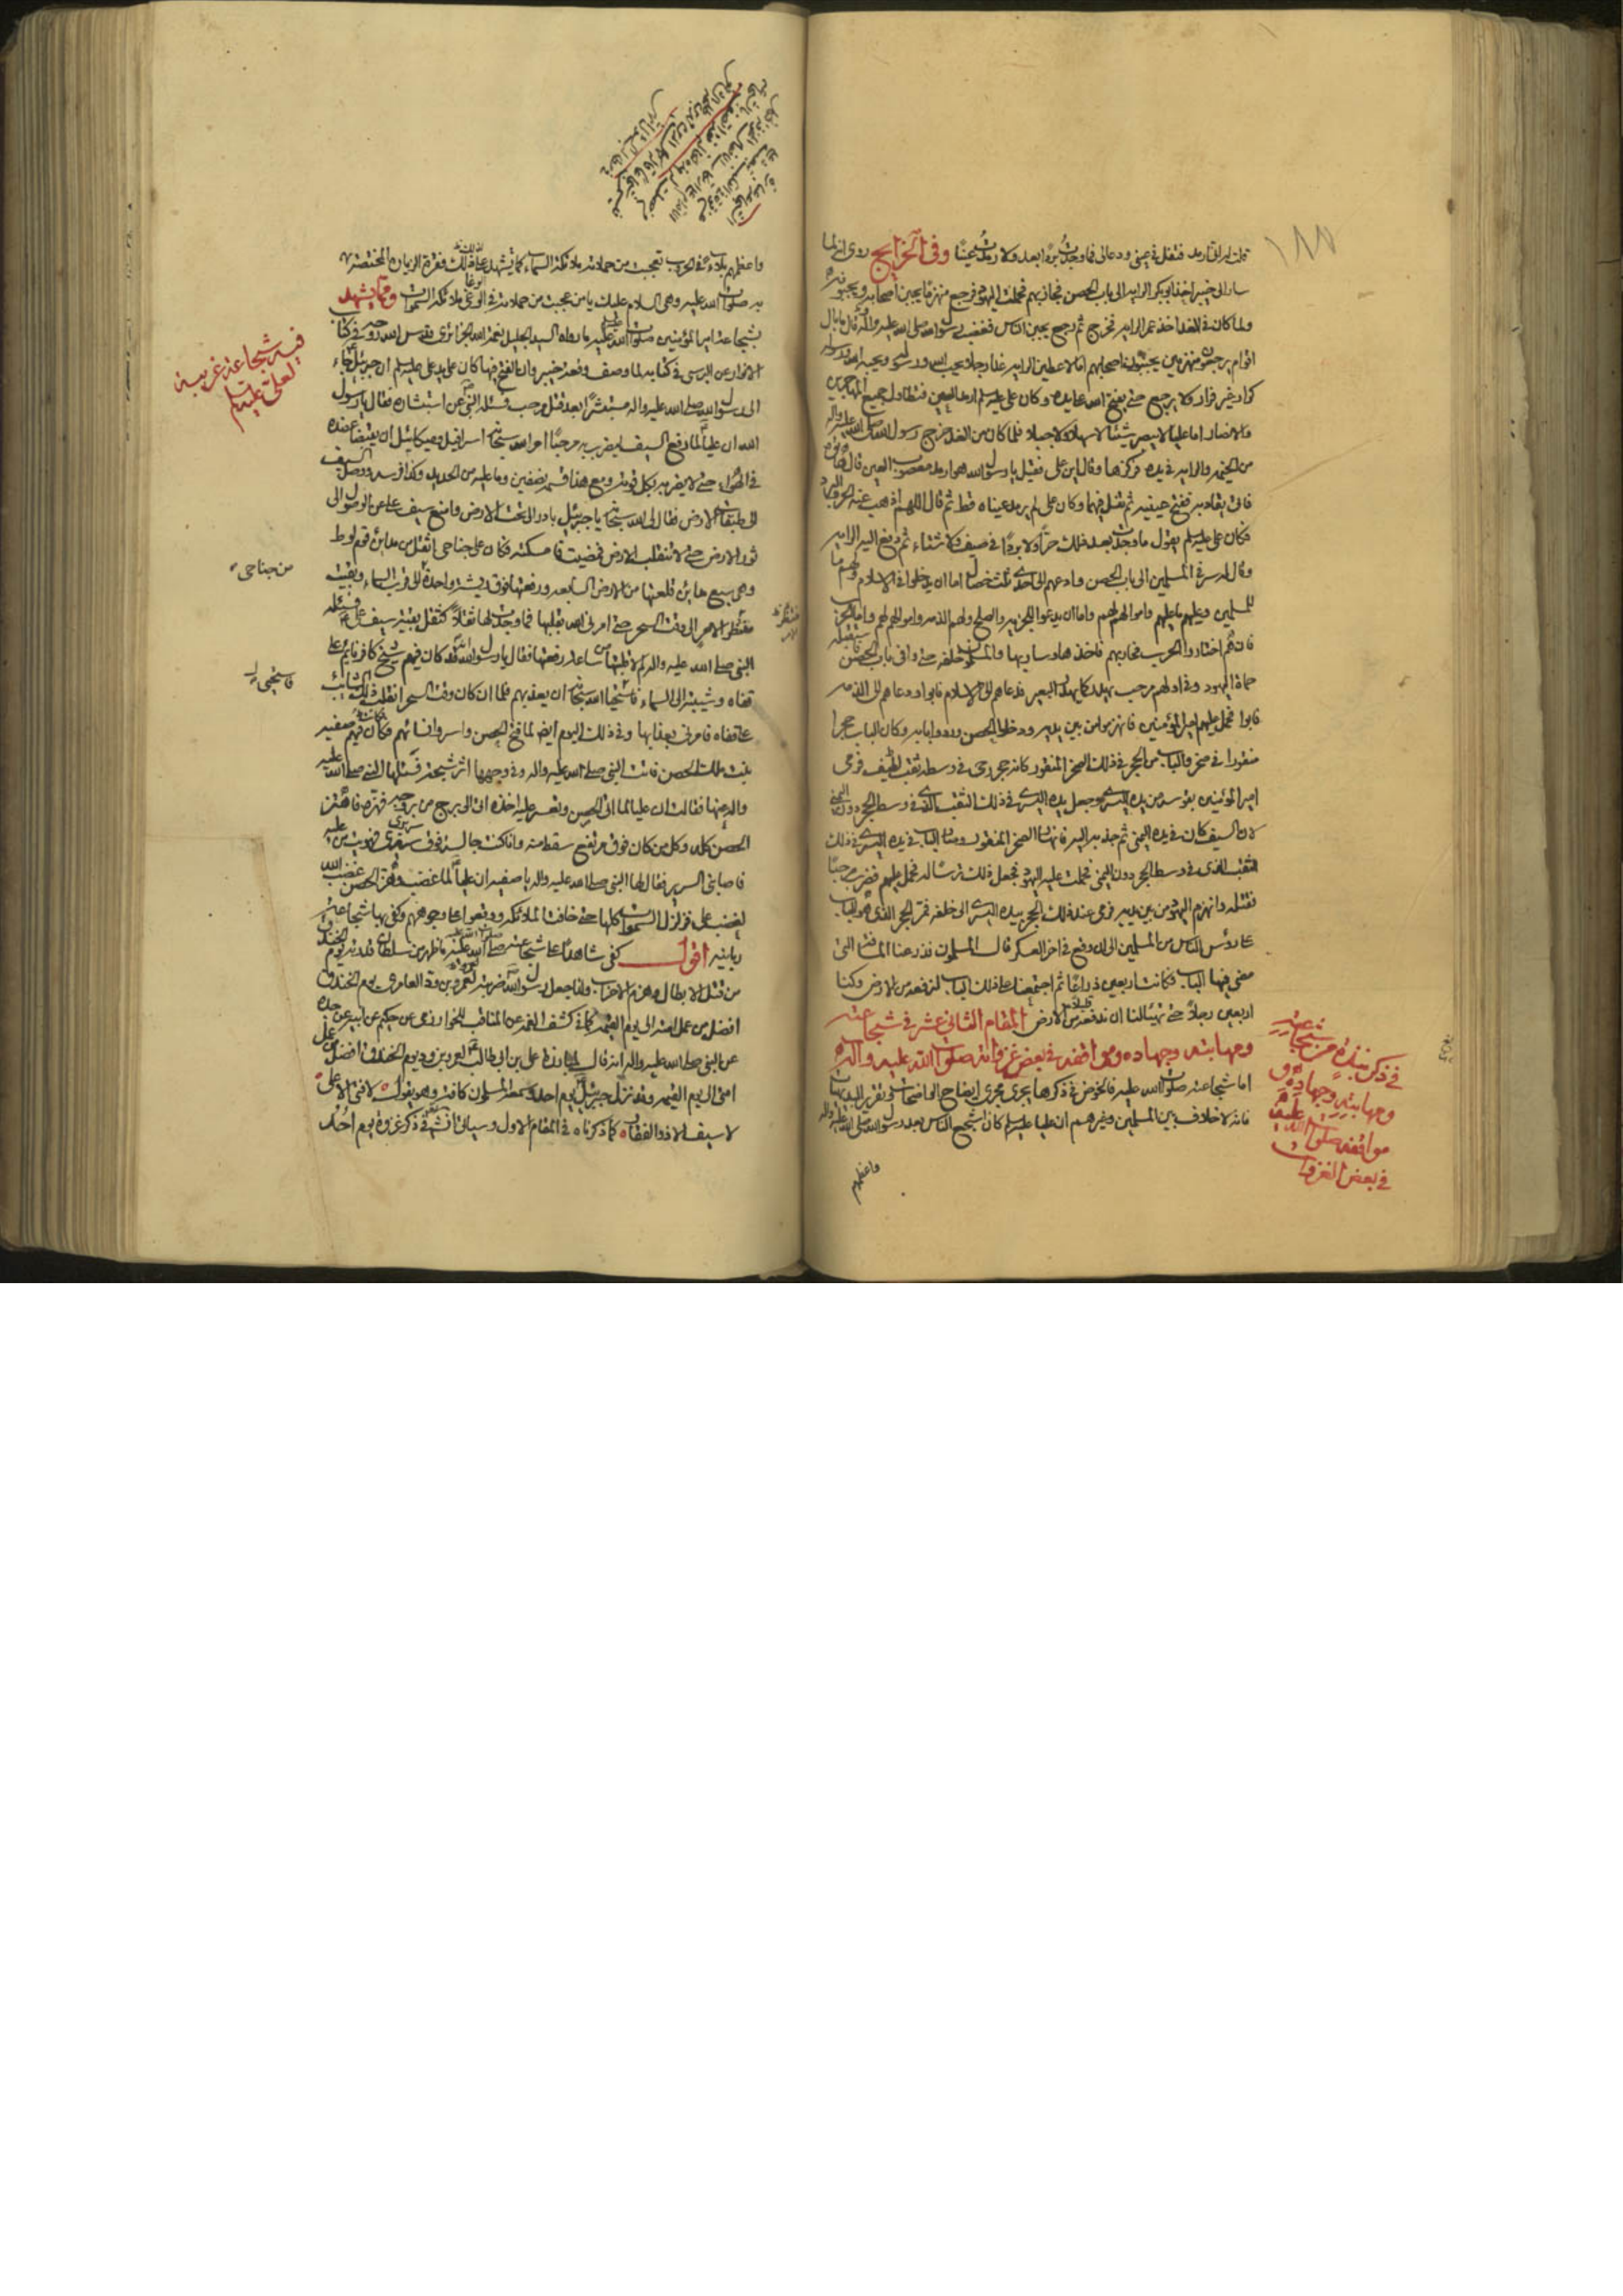 ١٨٨
قلت له انى ارمد فتفل فى عينى ودعا لى فما وجدت بردا بعد ولا رمدت عينا وفى الخرايج روى انه لما
سار الى خيبر اخذ ابوبكر الراية الى باب الحصن فحاربهم فحملت اليهود فرجع منهزما يجبن اصحابه ويجبنونه
ولما كان فى الغد اخذ عمر الراية فخرج ثم رجع يجبن الناس فغضب رسول الله صلى الله عليه واله وقال ما بال
اقوام يرجعون منهزمين يجبنون اصحابهم اما لاعطين الراية غدا رجلا يحب الله ورسوله ويحبه الله ورسوله
كرار غير فرار لا يرجع حتى يفتح الله على يده وكان على عليه السلم ارمد العين فتطاول جميع المهاجرين
والانصار اما على لا يبصر شيئا لا سهلا ولا جبلا فلما كان من الغد خرج رسول الله صلى الله عليه واله
من الخيمة والراية فى يده فركزها وقال اين على فقيل يا رسول الله هو ارمد معصوب العين قال هاتوه
فاتى يقاد به ففتح عينيه ثم تفل فيهما وكان على لم يرمد عيناه قط ثم قال اللهم اذهب عنه الحر والبرد
فكان على عليه السلم يقول ما وجدت بعد ذلك حرا ولا بردا فى صيف ولا شتاء ثم دفع اليه الراية
وقال له سر فى المسلمين الى باب الحصن وادعهم الى احدى ثلث خصال اما ان يدخلوا فى الاسلام ولهم ما
للمسلمين وعليهم ما عليهم واموالهم لهم واما ان يذعنوا للجزية والصلح ولهم الذمة واموالهم لهم واما الحرب
فان هم اختاروا الحرب فحاربهم فاخذها وسار بها والمسلمون خلفه حتى وافى باب الحصن فاستقبله
حماة اليهود وفى اولهم مرحب يهدر كما يهدر البعير فدعاهم الى الاسلام فابوا ودعاهم الى الذمة
فابوا فحمل عليهم امير المؤمنين فانهزموا من بين يديه ودخلوا الحصن وردوا بابه وكان الباب حجرا
منقورا فى صخر والباب من الحجر فى ذلك الصخر المنقور كانه حجر رحى فى وسطه ثقب لطيف فرمى
امير المؤمنين بقوسه من يده اليسرى وجعل يده اليسرى فى ذلك الثقب الذى فى وسط الحجر دون اليمنى
لان السيف كان فى يده اليمنى ثم جذبه اليه فانهار الصخر المنقور وصار الباب فى يده اليسرى فى ذلك
الثقب الذى فى وسط الحجر دون اليمنى فحملت عليه اليهود فجعل ذلك ترسا له فحمل عليهم فضرب مرحبا
فقتله وانهزم اليهود من بين يديه فرمى عند ذلك الحجر بيده اليسرى الى خلفه فمر الحجر الذى هو الباب
على رؤس الناس من المسلمين الى ان وقع فى اخر العسكر قال المسلمون فذرعنا المسافة التى
مضى فيها الباب فكانت اربعين ذراعا ثم اجتمعنا على ذلك الباب لنرفعه من الارض وكنا
اربعين رجلا حتى تهيأ لنا ان نرفعه قليلا من الارض المقام الثانى عشر فى شجاعته
ومهابته وجهاده ومواقفه فى بعض غزواته صلوات الله عليه واله
اما شجاعته صلوات الله عليه فالخوض فى ذكرها يجرى مجرى ايضاح الواضحات وتقرير البديهيات
فانه لا خلاف بين المسلمين وغيرهم ان عليا عليه السلم كان اشجع الناس بعد رسول الله صلى الله عليه واله
واعظهم
فى ذكر نبذة من شجاعته
ومهابته وجهاده و
مواقفه صلوات الله عليه
فى بعض الغزوات
واعظمهم بلاء فى الحروب تعجبت من حملاته ملائكة السماء كما تشهد على ذلك فقرة الزيارة المختصة
به صلوات الله عليه وهى السلام عليك يا من عجبت من حملاته فى الوغى ملائكة السموات ومما يشهد
بشجاعة امير المؤمنين صلوات الله عليه ما رواه السيد الجليل نعمة الله الجزائرى قدس الله روحه فى كتاب
الانوار عن البرسى فى كتابه لما وصف وقعة خيبر وان الفتح فيها كان على يد على عليه السلم ان جبرئيل جاء
الى رسول الله صلى الله عليه واله مستبشرا بعد قتل مرحب فسئله النبى عن استبشاره فقال يا رسول
الله ان عليا لما رفع السيف ليضرب به مرحبا امر الله سبحانه اسرافيل وميكائيل ان يقبضا عضده
فى الهواء حتى لا يضرب بكل قوته ومع هذا قسمه نصفين وما عليه من الحديد وكذا فرسه ووصل السيف
الى طبقات الارض فقال لى الله سبحانه يا جبرئيل بادر الى تحت الارض وامنع سيف على عن الوصول الى
ثور الارض حتى لا تنقلب الارض فمضيت فامسكته فكان على جناحى اثقل من مدائن قوم لوط
وهى سبع مدائن قلعتها من الارض السابعة ورفعتها فوق ريشة واحدة الى قرب السماء وبقيت
منتظر الامر الى وقت السحر حتى امرنى الله بقلبها فما وجدت لها ثقلا كثقل سيف على فسئله
النبى صلى الله عليه واله لم لا قلبتها من ساعة رفعتها فقال يا رسول الله انه قد كان فيهم شيخ كافر نائم على
قفاه وشيبته الى السماء فاستحيا الله سبحانه ان يعذبهم فلما ان كان وقت السحر انقلب ذلك الشائب
على قفاه فامرنى بعذابها وفى ذلك اليوم ايضا لما فتح الحصن واسروا نسائهم فكانت فيهم صفية
بنت ملك الحصن فاتت النبى صلى الله عليه واله وفى وجهها اثر شجة فسئلها النبى صلى الله عليه
واله عنها فقالت ان عليا لما اتى الحصن وتعسر عليه اخذه اتى الى برج من بروجه فهزه فاهتز
الحصن كله وكل من كان فوق مرتفع سقط منه وانا كنت جالسة فوق سريرى فهويت من عليه
فاصابنى السرير فقال لها النبى صلى الله عليه واله يا صفية ان عليا لما غضب وهز الحصن غضب الله
لغضب على فزلزل السموات كلها حتى خافت الملائكة ووقعوا على وجوههم وكفى بها شجاعة
ربانية اقول كفى شاهدا على شجاعته صلوات الله عليه ما ظهر من سلطان قدرته يوم الخندق
من قتل الابطال وهزم الاحزاب ولذا جعل رسول الله ضربته لعمرو بن ود العامرى يوم الخندق
افضل من عمل امته الى يوم القيمة كما فى كشف الغمة عن المناقب للخوارزمى عن حكيم عن ابيه عن جده
عن النبى صلى الله عليه واله انه قال لمبارزة على بن ابى طالب لعمرو بن ود يوم الخندق افضل من عمل
امتى الى يوم القيمة وقد نزل جبرئيل يوم احد وسمعه المسلمون كافة وهو يقول لا فتى الا على
لا سيف الا ذو الفقار كما ذكرناه فى المقام الاول وسياتى انشاء الله فى ذكر غزوة يوم احد
فيه شجاعة غريبة
لعلى عليه السلم
من جناحى
منتظر
الامر
فاستحيى